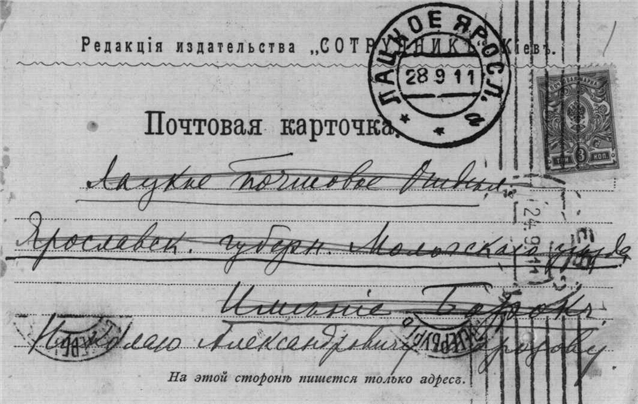 Редакція издательства „СОТРУДНИКЪ" Кіевъ.
ЛАЦКОЕ ЯРОСЛ.
28 9 11
а
Почтовая карточка.
3 КОП.
Лацкое почтовое Отдѣл.
24.9.11
Ярославск. губерн. Мологскаго уѣзда
Имѣніе Борокъ
Николаю Александровичу Морозову.
На этой сторонѣ пишется только адресъ.